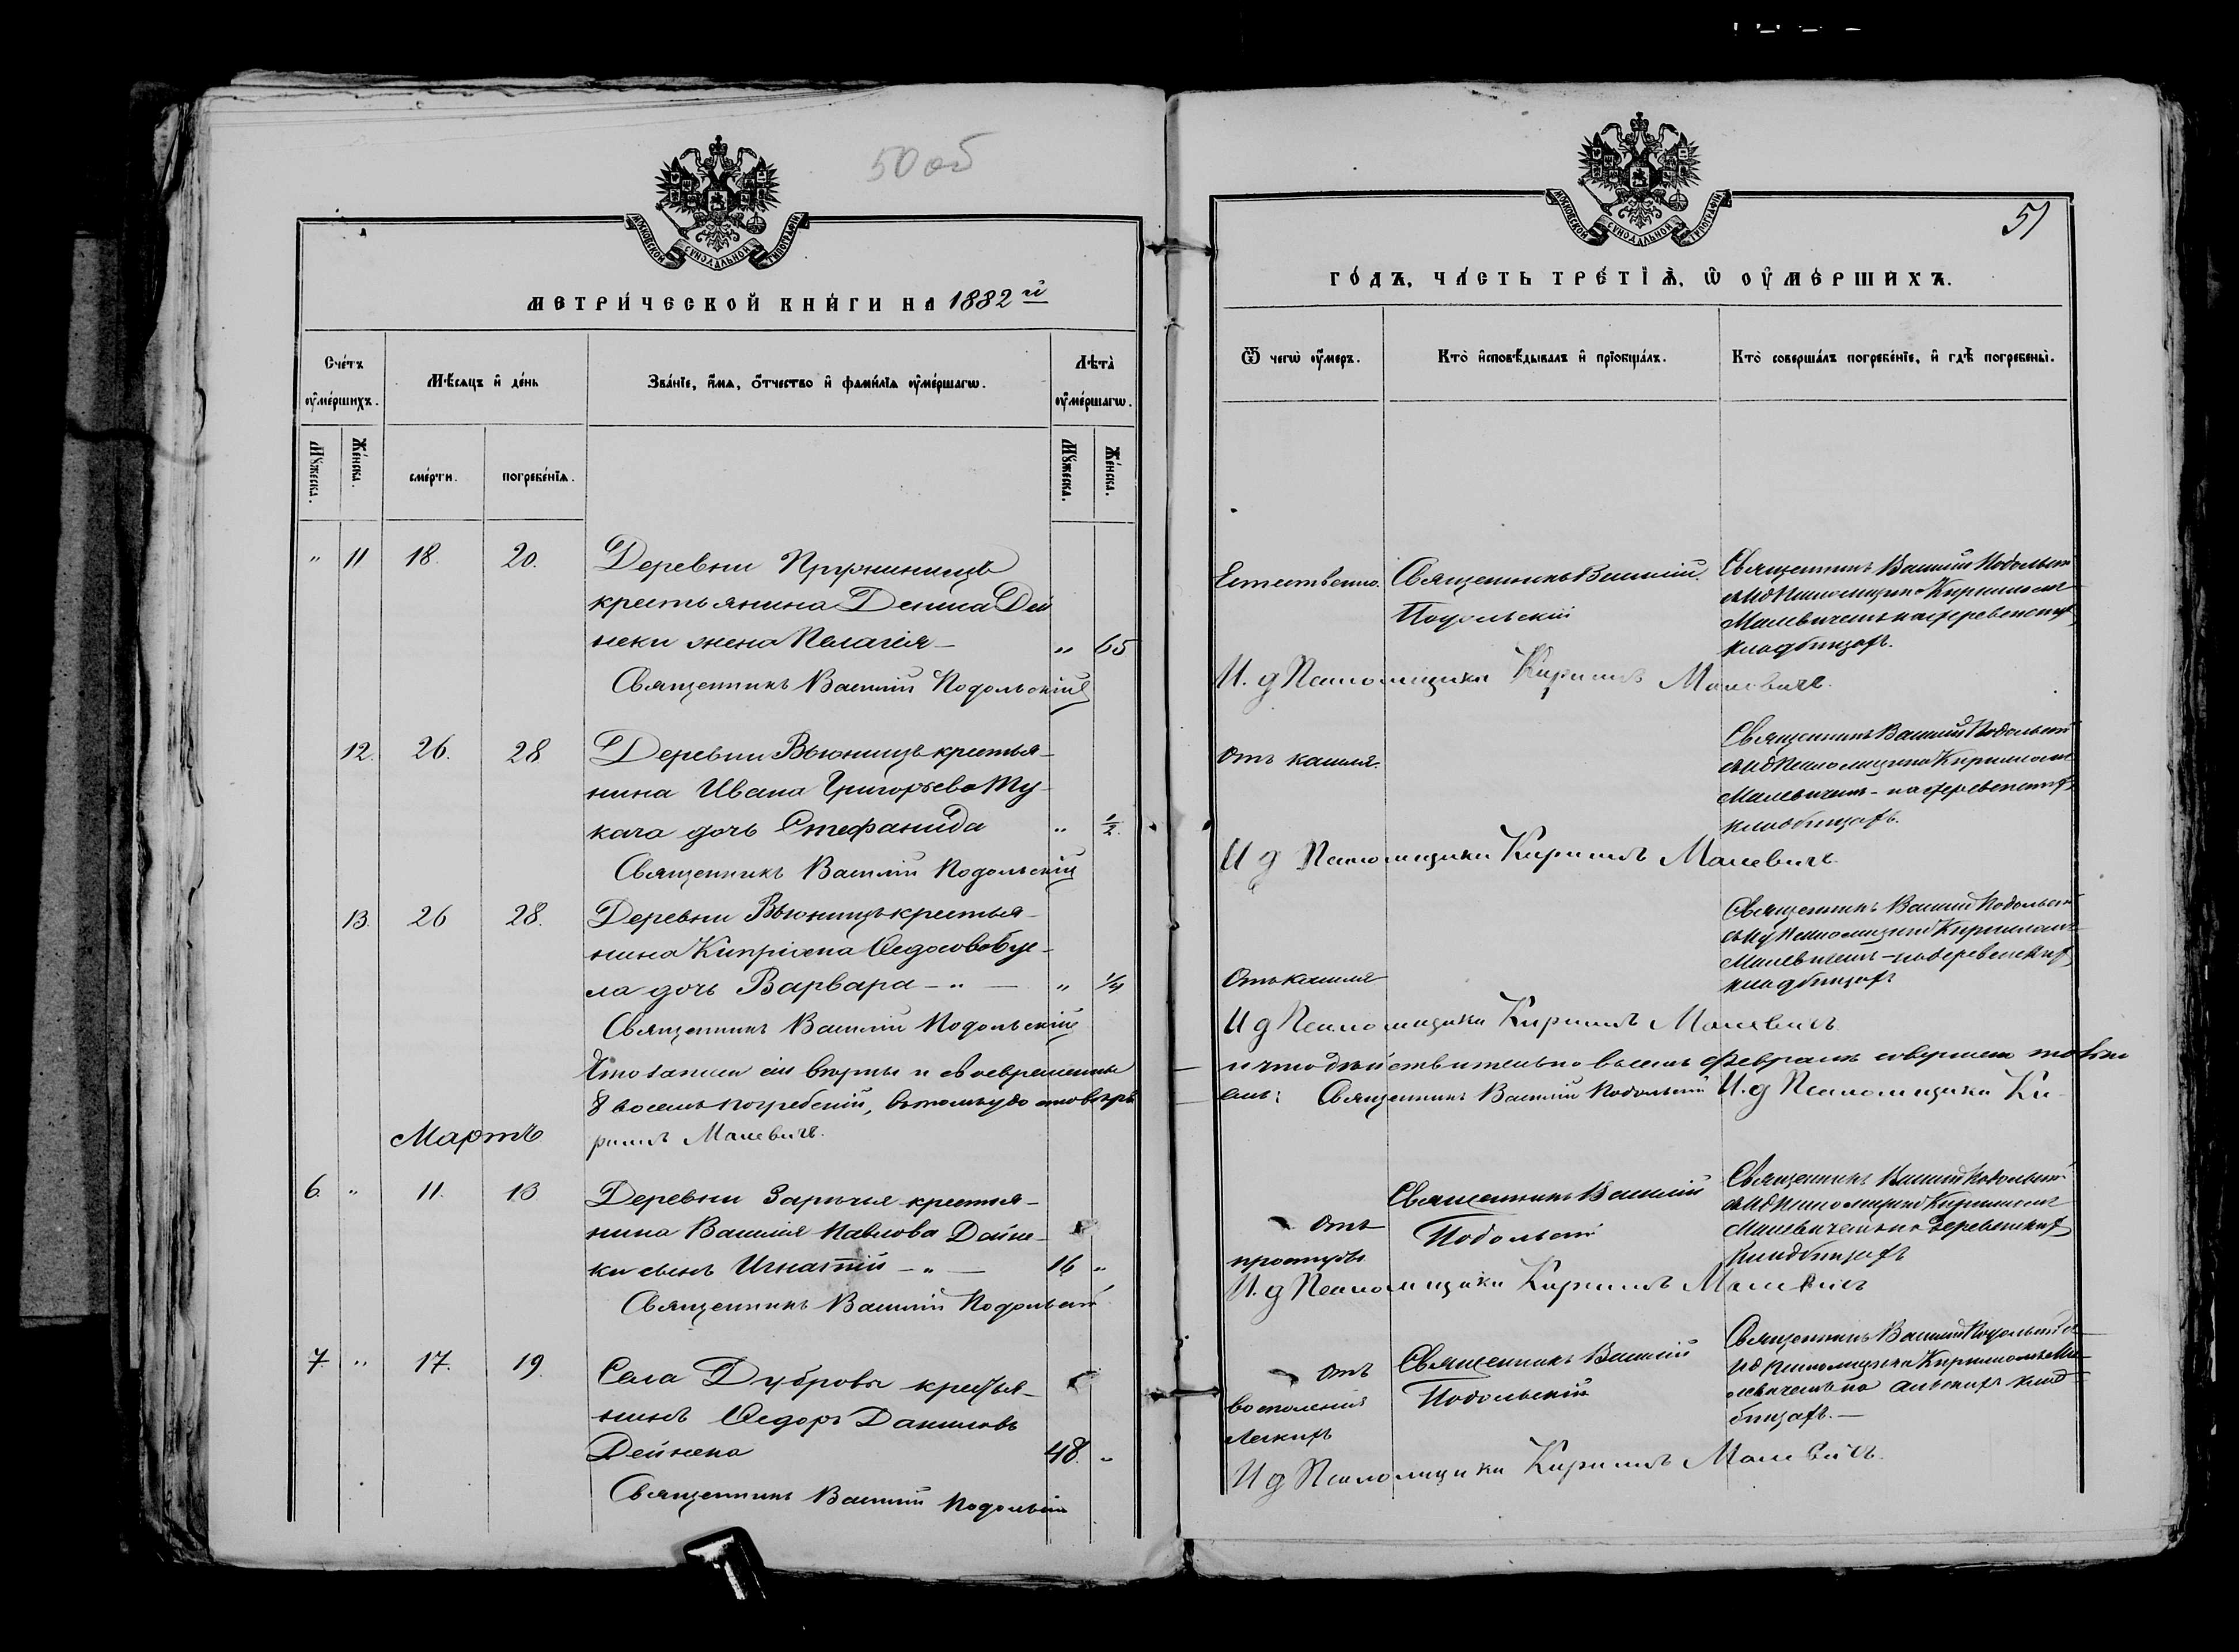 50 об
МОСКОВСКОЙ СѴНОДАЛЬНОЙ ТИПОГРАФІИ
МЕТРИ́ЧЕСКОЙ КНИ́ГИ НА 1882 й
Сче́тъ ᲂу҆ме́ршихъ.
Мѣ́сяцъ и҆ де́нь
Зва́нїе, и҆́мѧ, ѻ҆́тчество и҆ фами́лїѧ ᲂу҆ме́ршагѡ.
Лѣта̀ ᲂу҆ме́ршагѡ.
Мꙋ́жеска. Же́нска.
сме́рти. погребе́нїѧ.
Мꙋ́жеска. Же́нска.
" 11 18. 20. Деревни Пружиницъ
крестьянина Дениса Дей
неки жена Пелагія – " 65
Священникъ Василій Подольскій
12. 26. 28 Деревни Вьюницъ крестья-
нина Ивана Григорьева Ту-
кача дочь Стефанида " 1/2.
Священникъ Василій Подольскій
13. 26 28. Деревни Вьюницъ крестья-
нина Кипріяна Ѳедосова
ла дочь Варвара – " – " 1/4
Священникъ Василій Подольскій
Что записи сіи вѣрны и своевременны
въ томъ удостовѣря
Мартъ
рилъ Малевичъ.
6. " 11. 13 Деревни Заричья крестья-
нина Василія Павлова Дайне-
ки сынъ Игнатій – " – 16 "
Священникъ Василій Подольскій
7. " 17. 19. Села Дубровы крестья-
нинъ Ѳедоръ Даниловъ
Дейнека 48. "
Священникъ Василій Подольскій
51
МОСКОВСКОЙ СѴНОДАЛЬНОЙ ТИПОГРАФІИ
ГО́ДЪ, ЧА́СТЬ ТРЕ́ТЇѦ, Ѡ҆ ОУ҆МЕ́РШИХЪ.
Ѿ чегѡ̀ ᲂу҆́меръ.
Кто̀ и҆сповѣ́дывалъ и҆ прїобща́лъ.
Кто̀ соверша́лъ погребе́нїе, и҆ гдѣ̀ погребены̀.
Естественно. Священникъ Василій Подольскій
Священникъ Василій Подольскій
съ ид Псаломщика Кирилломъ
Малевичемъ на деревенскихъ
кладбищахъ.
И. д Псаломщика Кириллъ Малевичъ.
Отъ кашля.
Священникъ Василій Подольскій
съ ид Псаломщика Кирилломъ
Малевичемъ – на деревенскихъ
кладбищахъ.
И д Псаломщика Кириллъ Малевичъ
Отъ кашля
Священникъ Василій Подольскій
съ ид Псаломщика Кирилломъ
Малевичемъ – на деревенскихъ
кладбищахъ
И д Псаломщика Кириллъ Малевичъ.
и что дѣйствительно въ семъ Февралѣ совершено
емъ: Священникъ Василій Подольскій И. д Псаломщика Ки-
Отъ
простуды
Священникъ Василій
Подольскій
Священникъ Василій Подольскій
съ ид Псаломщика Кирилломъ
Малевичемъ на деревенскихъ
кладбищахъ
И. д Псаломщика Кириллъ Малевичъ
Отъ
воспаленія
Легкихъ
Священникъ Василій
Подольскій
Священникъ Василій Подольскій съ
ид псаломщика Кирилломъ Ма-
левичемъ на сельскихъ клад-
бищахъ. –
И д Псаломщика Кириллъ Малевичъ.